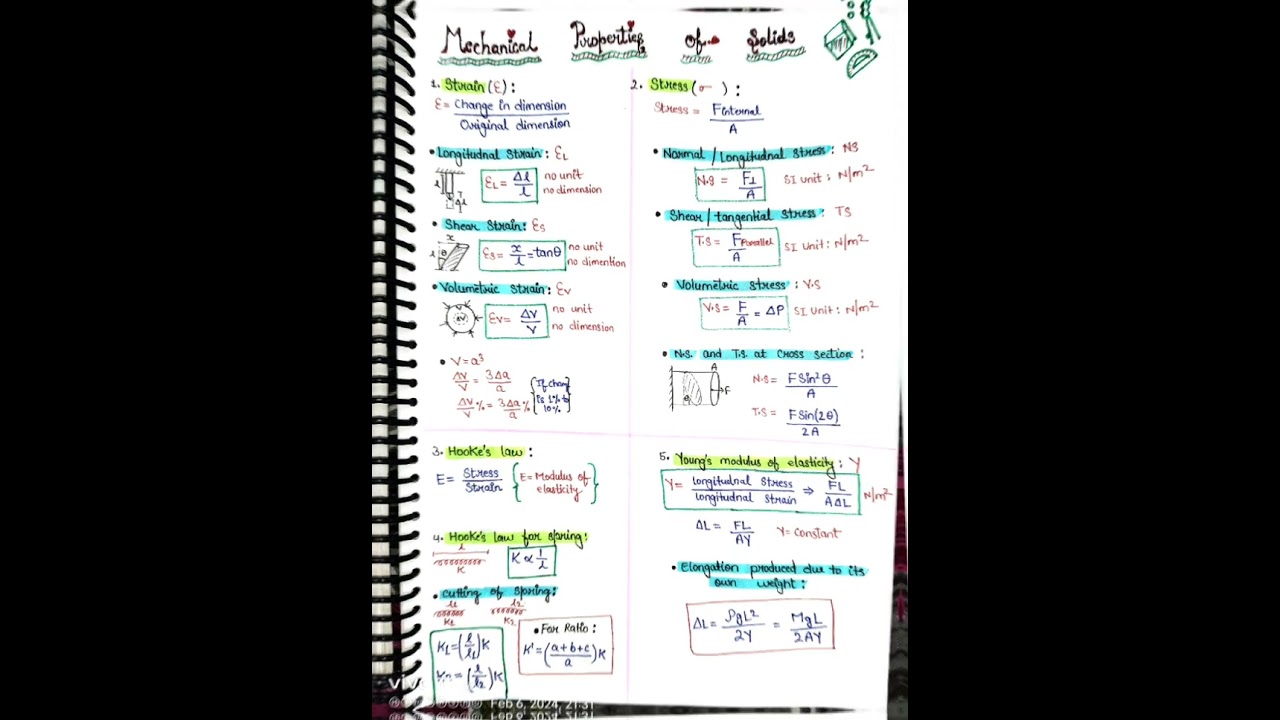 Mechanical Properties of Solids
1. Strain (ε) :
ε = Change in dimension / Original dimension
• Longitudnal Strain : εL
l
Δl
εL = Δl / l
no unit
no dimension
• Shear Strain : εs
x
l
θ
εs = x / l = tanθ
no unit
no dimention
• Volumetric Strain : εv
ΔV
εv = ΔV / V
no unit
no dimension
• V = a³
ΔV / V = 3Δa / a
ΔV / V % = 3Δa / a %
{ If chan
is 1% to
10%. }
2. Stress (σ ) :
Stress = F internal / A
• Normal / Longitudnal Stress : NS
N.S = F⊥ / A
SI unit : N/m²
• Shear / tangential Stress : TS
T.S = F Parallel / A
SI Unit : N/m²
• Volumetric Stress : V.S
V.S = F / A = ΔP
SI Unit : N/m²
• N.S. and T.S. at Cross section :
A
θ
F
N.S = F Sin²θ / A
T.S = F Sin(2θ) / 2A
3. Hooke's law :
E = Stress / Strain { E = Modulus of
elasticity }
4. Hooke's law for spring :
l
K
K ∝ 1 / l
• cutting of spring :
l1 l2
K1 K2
K1 = (l / l1) K
= (l / l2) K
• For Ratio :
K' = (a+b+c / a) K
5. Young's modulus of elasticity : Y
Y = longitudnal stress / longitudnal strain ⇒ FL / AΔL N/m²
ΔL = FL / AY Y = Constant
• Elongation produced due to its
own weight :
ΔL = ρgL² / 2Y = MgL / 2AY
viv
Feb 6, 2024, 21:31